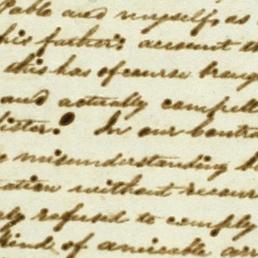 Pable and myself, as
his father's account th
this has of course broug
and actually compell
lister. In our contra
misunderstanding b
ation without recours
ly refused to comply
kind of amicable arr